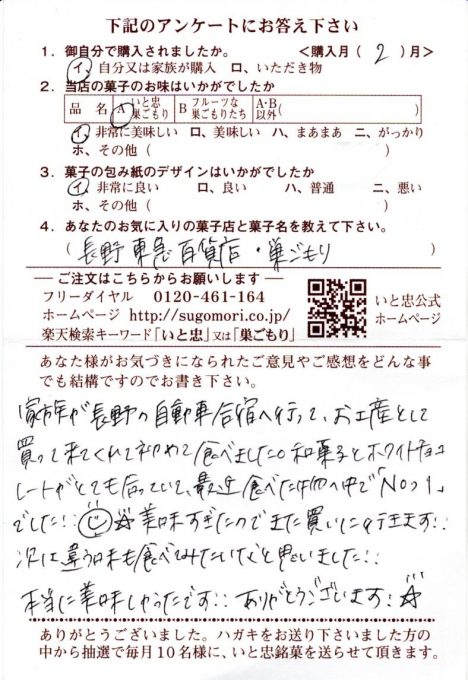 下記のアンケートにお答え下さい
1. 御自分で購入されましたか。 <購入月( 2 )月>
イ、自分又は家族が購入 ロ、いただき物
2. 当店の菓子のお味はいかがでしたか
品 名 A いと忠巣ごもり B フルーツな巣ごもりたち A・B以外( )
イ、非常に美味しい ロ、美味しい ハ、まあまあ ニ、がっかり
ホ、その他 ( )
3. 菓子の包み紙のデザインはいかがでしたか
イ、非常に良い ロ、良い ハ、普通 ニ、悪い
ホ、その他 ( )
4. あなたのお気に入りの菓子店と菓子名を教えて下さい。
( 長野 東急百貨店・巣ごもり )
ご注文はこちらからお願いします
フリーダイヤル 0120-461-164
ホームページ http://sugomori.co.jp/
楽天検索キーワード「いと忠」又は「巣ごもり」
いと忠公式
ホームページ
あなた様がお気づきになられたご意見やご感想をどんな事
でも結構ですのでお書き下さい。
家族が長野の自動車合宿へ行って、お土産として
買って来てくれて初めて食べました。和菓子とホワイトチョコ
レートがとても合っていて、最近食べた中で「No1」
でした!! ☆美味すぎたのでまた買いに行きます!!
次は違う味も食べてみたいなと思いました!!
本当に美味しかったです!! ありがとうございます! ☆
ありがとうございました。ハガキをお送り下さいました方の
中から抽選で毎月10名様に、いと忠銘菓を送らせて頂きます。